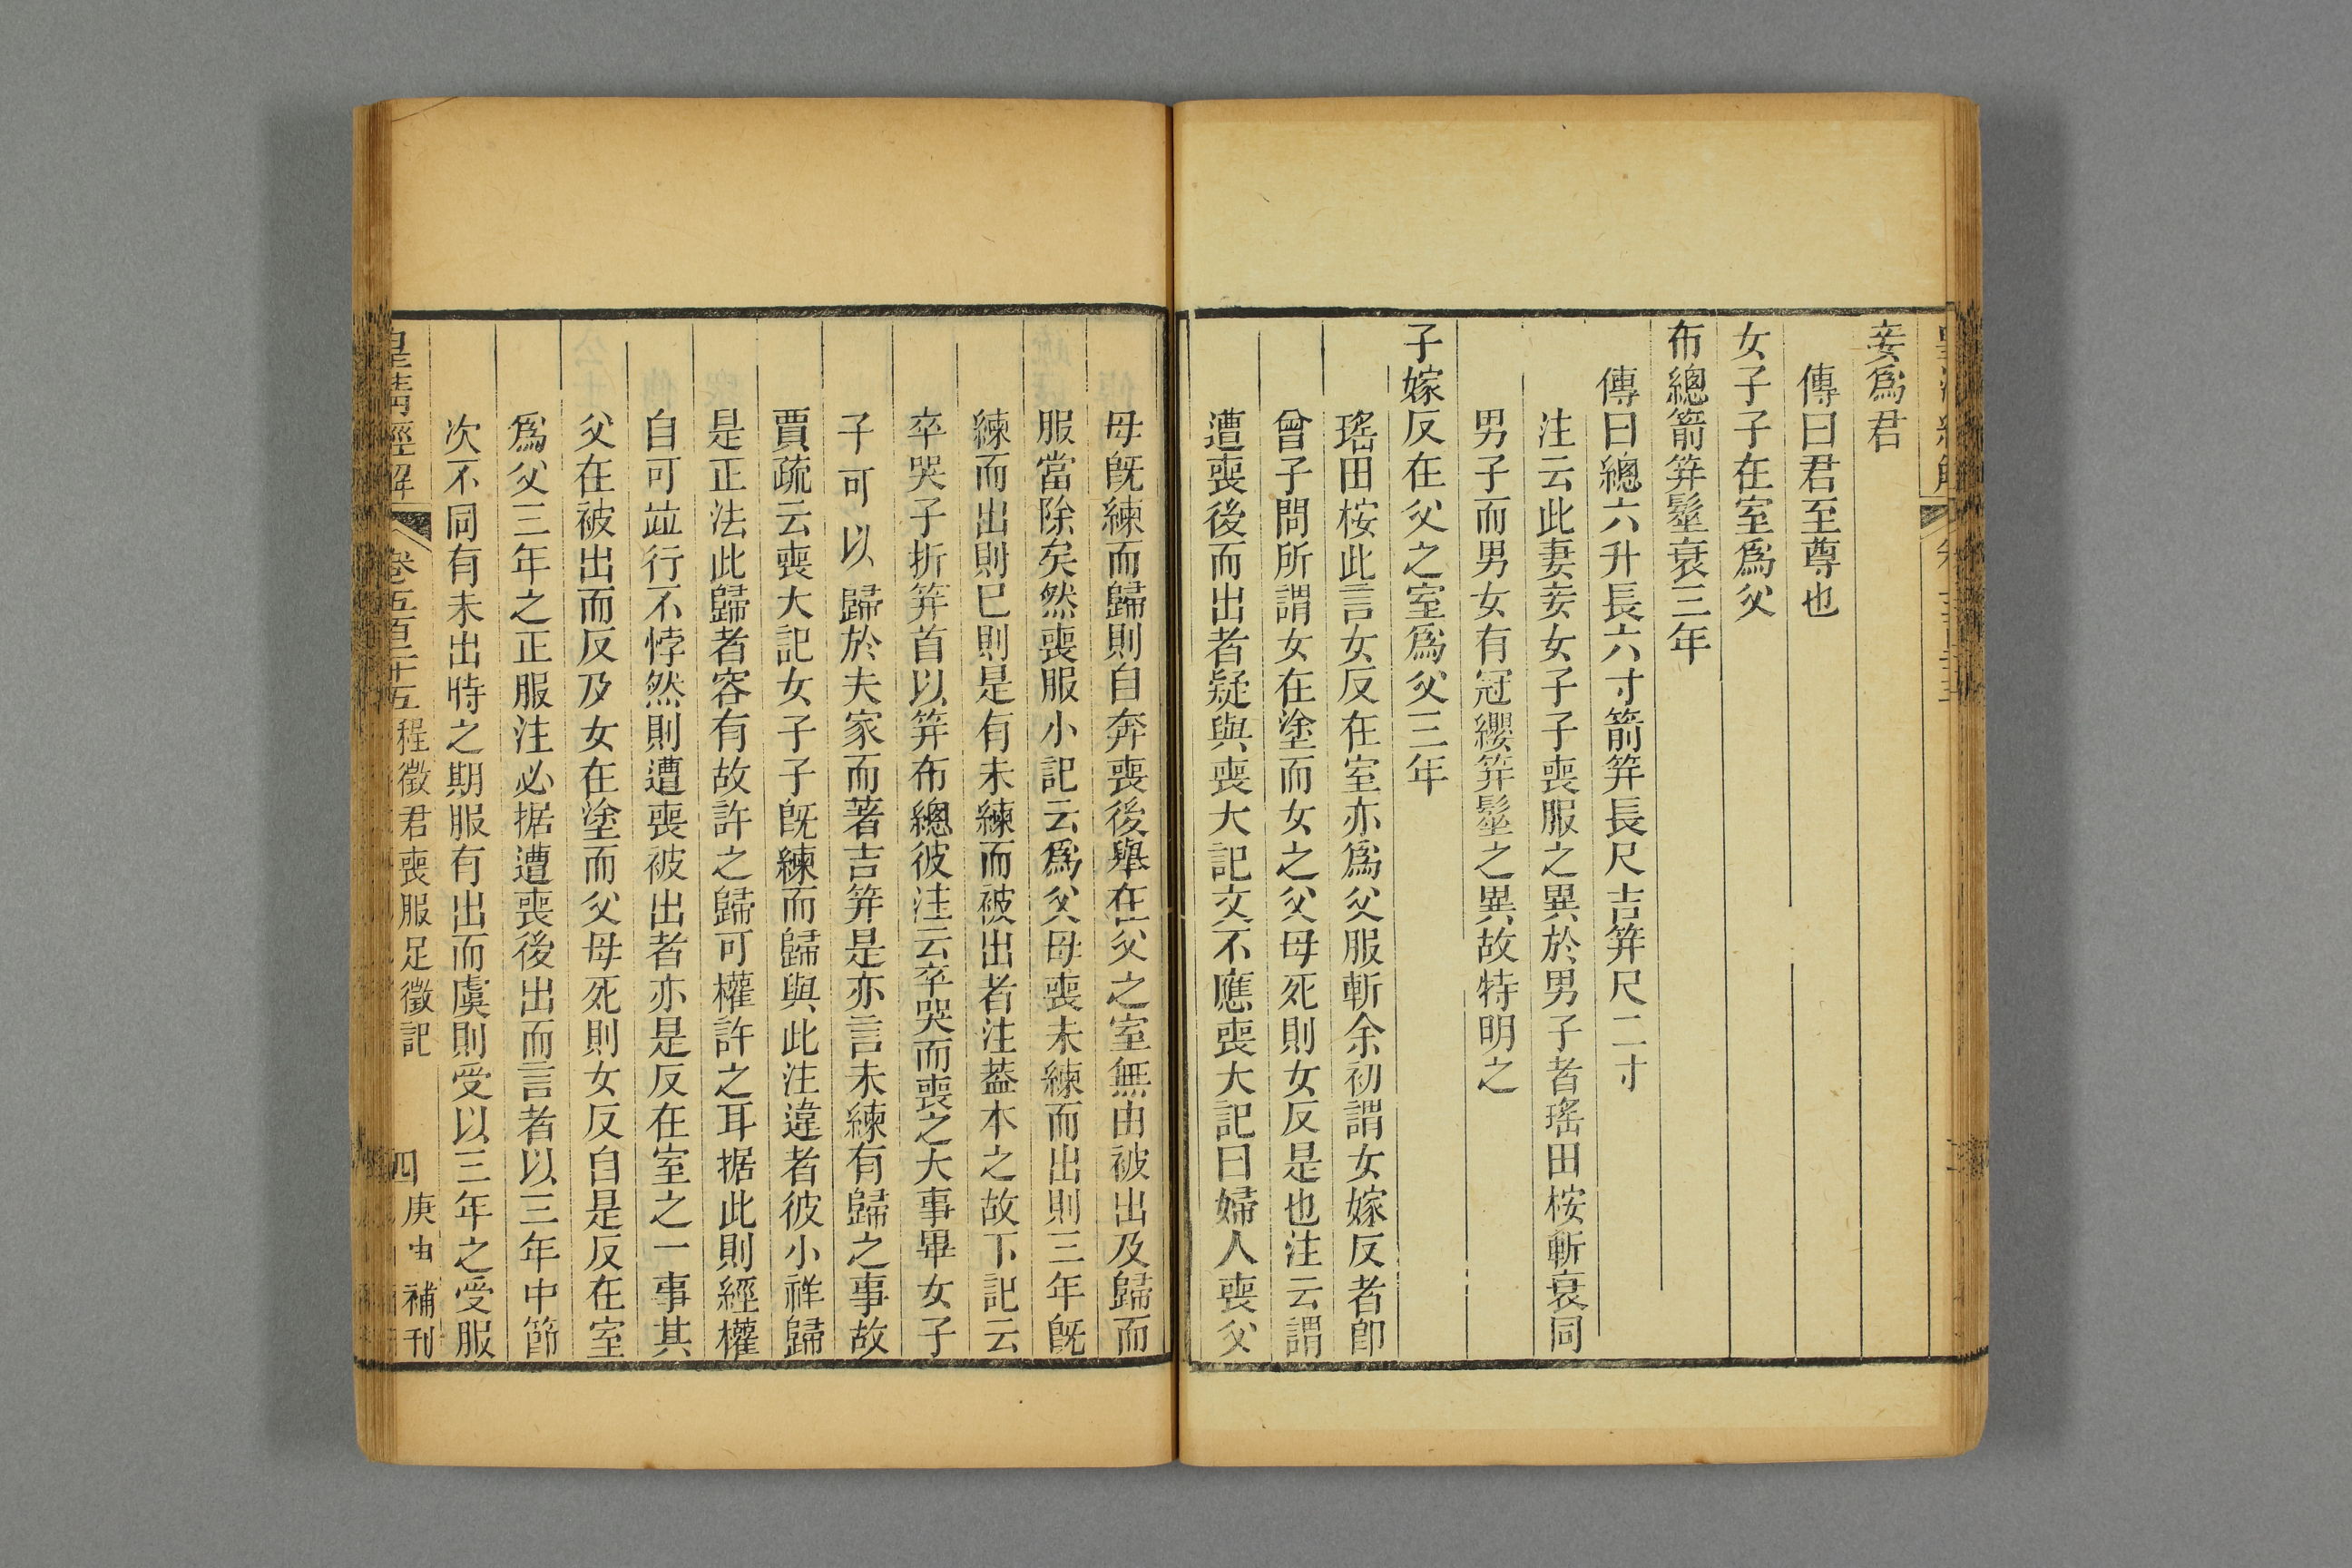 妾爲君
傳曰君至尊也
女子子在室爲父
布總箭筓髽衰三年
傳曰總六升長六寸箭筓長尺吉筓尺二寸
注云此妻妾女子子喪服之異於男子者瑤田桉斬衰同
男子而男女有冠纓筓髽之異故特明之
子嫁反在父之室爲父三年
瑤田桉此言女反在室亦爲父服斬余初謂女嫁反者卽
曾子問所謂女在塗而女之父母死則女反是也注云謂
遭喪後而出者疑與喪大記文不應喪大記曰婦人喪父
母旣練而歸則自奔喪後舉在父之室無由被出及歸而
服當除矣然喪服小記云爲父母喪未練而出則三年旣
練而出則已則是有未練而被出者注葢本之故下記云
卒哭子折筓首以筓布總彼注云卒哭而喪之大事畢女子
子可以歸於夫家而著吉筓是亦言未練有歸之事故
賈疏云喪大記女子子旣練而歸與此注違者彼小祥歸
是正法此歸者容有故許之歸可權許之耳据此則經權
自可竝行不悖然則遭喪被出者亦是反在室之一事其
父在被出而反及女在塗而父母死則女反自是反在室
爲父三年之正服注必据遭喪後出而言者以三年中節
次不同有未出時之期服有出而虞則受以三年之受服
皇淸經解 卷五百二十五 程徵君喪服足徵記 四 庚申補刊